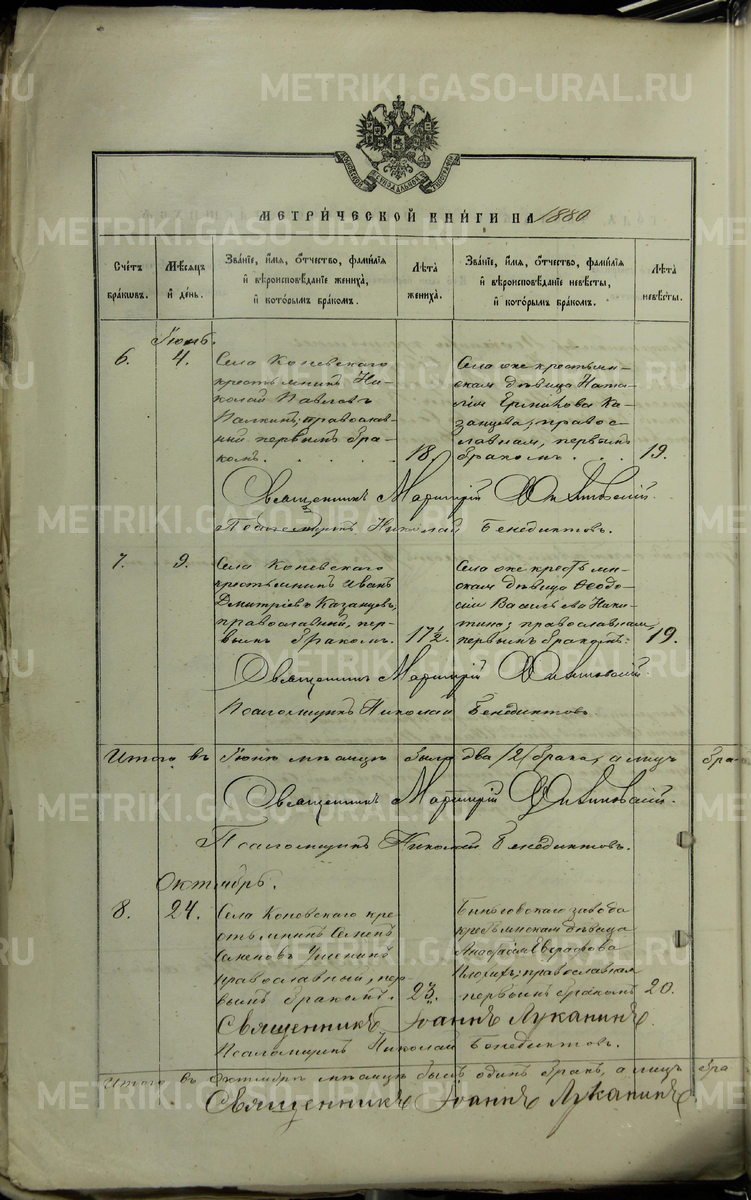 METRIKI.GASO-URAL.RU
МЕТРИ́ЧЕСКОЙ КНИ́ГИ НА 1880
Счетъ бракѡвъ.
Мѣсяцъ и день.
Зва́нїе, и́мя, ѻ́тчество, фами́лїя и вѣроисповѣ́данїе жениха̀, и кото́рымъ бра́комъ.
Лѣ́та жениха̀.
Зва́нїе, и́мя, ѻ́тчество, фами́лїя и вѣроисповѣ́данїе невѣ́сты, и кото́рымъ бра́комъ.
Лѣ́та невѣ́сты.
Іюнь.
6. 4.
Села Коневскаго
крестьянинъ Ни-
колай Павловъ
православ-
ный первымъ бра-
комъ. 18.
Села оке крестьян-
ская дѣвица Ната-
лія Ка-
занцева, правос-
лавная, первымъ
бракомъ. 19.
Священникъ Мартирій
Псаломщикъ Николай Бенедиктовъ.
7. 9.
Села Коневскаго
крестьянинъ Иванъ
Дмитріевъ Казанцевъ,
православный, пер-
вымъ бракомъ. 17½.
Села оке крестьян-
ская дѣвица Ѳеодо-
сия Васильева Ники-
тина; православная,
первымъ бракомъ. 19.
Священникъ Мартирій
Псаломщикъ Николай Бенедиктовъ
Итого въ Іюнѣ мѣсяцѣ было два /2/ брака, а лицъ бра
Священникъ Мартирій
Псаломщикъ Николай Бенедиктовъ.
Октябрь.
8. 24.
Села Коневскаго кре-
стьянинъ Семенъ
Семеновъ
православный, пер-
вымъ бракомъ. 23.
завода
крестьянская дѣвица
Евграфова
православная
первымъ бракомъ 20.
Священникъ Іоаннъ Луканинъ
Псаломщикъ Николай Бенедиктовъ.
Итого въ Октябрѣ мѣсяцѣ былъ одинъ бракъ, а лицъ бра
Священникъ Іоаннъ Луканинъ